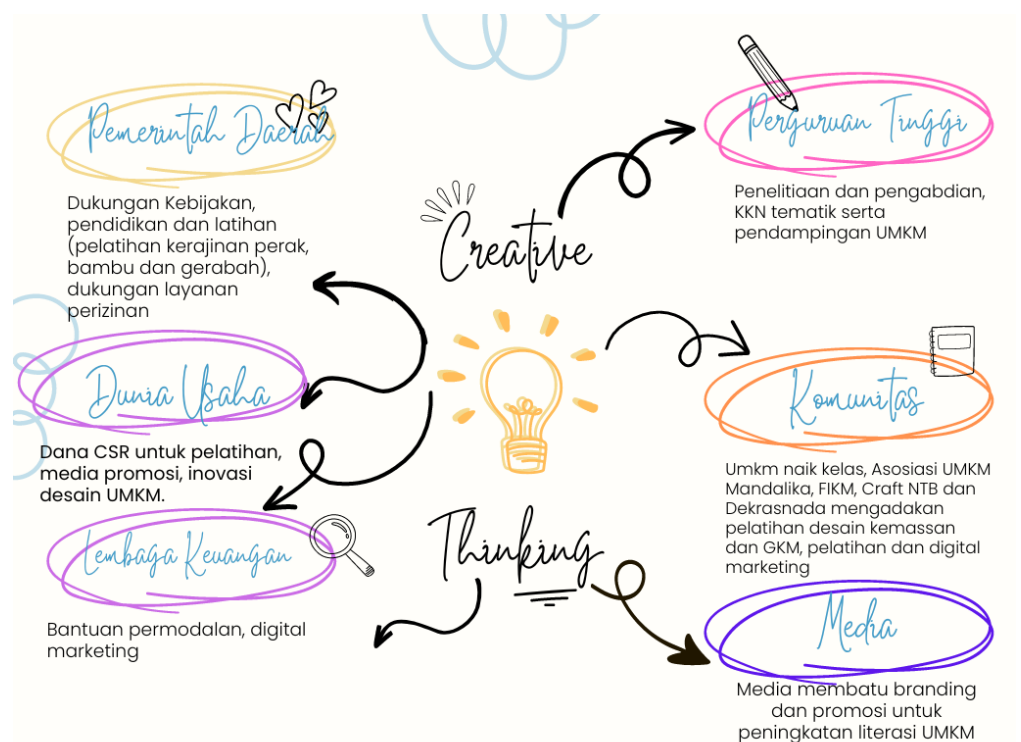 Pemerintah Daerah
Dukungan Kebijakan,
pendidikan dan latihan
(pelatihan kerajinan perak,
bambu dan gerabah),
dukungan layanan
perizinan
Dunia Usaha
Dana CSR untuk pelatihan,
media promosi, inovasi
desain UMKM.
Lembaga Keuangan
Bantuan permodalan, digital
marketing
Creative
Thinking
Perguruan Tinggi
Penelitiaan dan pengabdian,
KKN tematik serta
pendampingan UMKM
Komunitas
Umkm naik kelas, Asosiasi UMKM
Mandalika, FIKM, Craft NTB dan
Dekrasnada mengadakan
pelatihan desain kemassan
dan GKM, pelatihan dan digital
marketing
Media
Media membatu branding
dan promosi untuk
peningkatan literasi UMKM